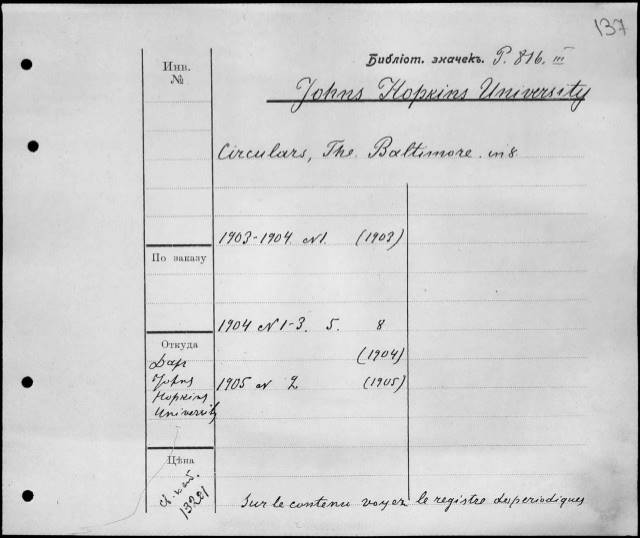 137
Библіот. значекъ. P. 816. III
Johns Hopkins University
Инв.
№
Circulars, The. Baltimore. in 8
1903-1904 N 1. (1903)
По заказу
1904 N 1-3. 5. 8
(1904)
Откуда
Дар
Johns
Hopkins
University
1905 N 2 (1905)
Цѣна
13281
Sur le contenu voyez le registre de periodiques